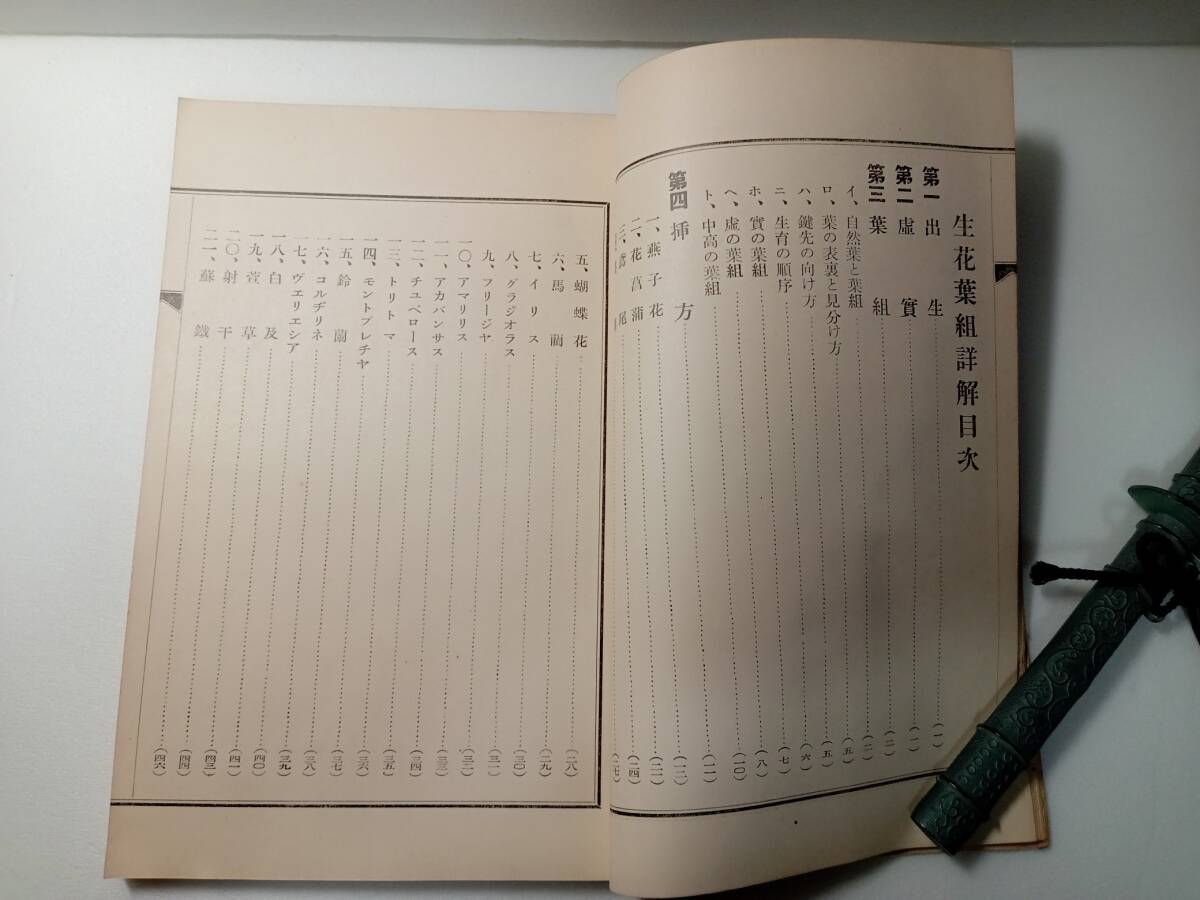 生花葉組詳解目次
第一 出生……(一)
第二 虛實……(一)
第三 葉組……(二)
イ、自然葉と葉組……(二)
ロ、葉の表裏と見分け方……(五)
ハ、鍵先の向け方……(五)
ニ、生育の順序……(六)
ホ、實の葉組……(七)
ヘ、虛の葉組……(八)
ト、中高の葉組……(一〇)
第四 挿方……(一一)
一、燕子花……(一二)
二、花菖蒲……(二一)
三、鳶尾……(二四)
(二七)
五、蝴蝶花……(二八)
六、馬藺……(二九)
七、イリス……(三〇)
八、グラジオラス……(三一)
九、フリージヤ……(三二)
一〇、アマリリス……(三三)
一一、アカバンサス……(三四)
一二、チュベロース……(三五)
一三、トリトマ……(三六)
一四、モントブレチヤ……(三七)
一五、鈴蘭……(三八)
一六、コルヂリネ……(三九)
一七、ヴェリエシア……(四〇)
一八、白及……(四一)
一九、萱草……(四三)
二〇、射干……(四四)
二一、蘇鐵……(四六)